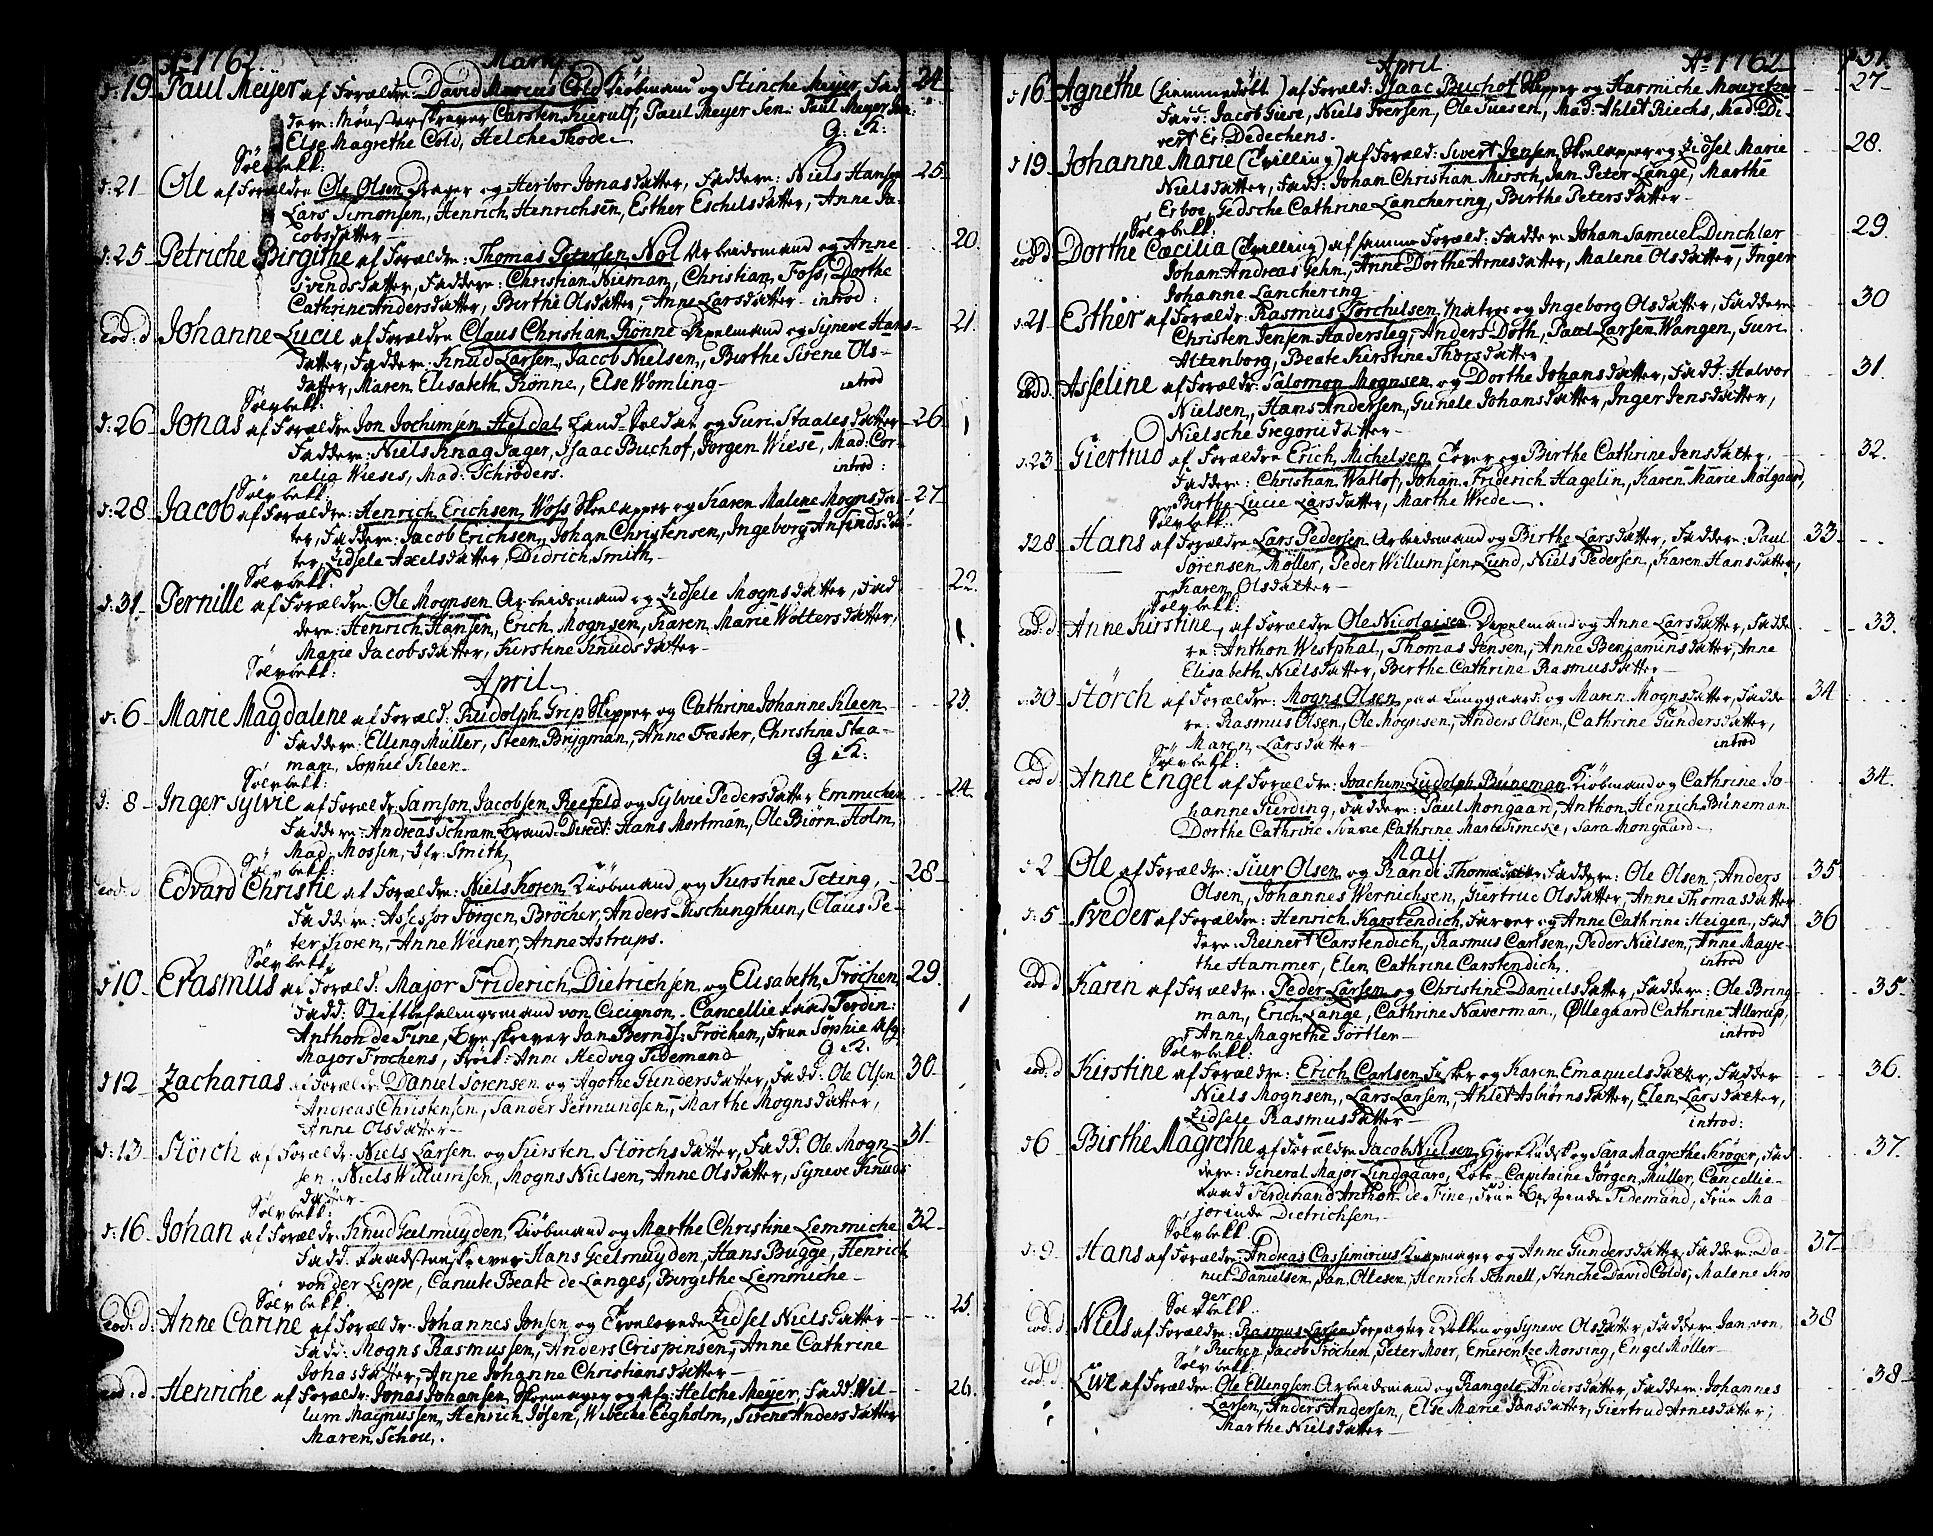 Aº 1762. Martij
d: 19 Paul Meÿer af Forældre: David Marcus Cold Kiøbmand og Stinche Meyer, Fad- 24
dere: Mønsterskriver Carsten Kierulf, Paul Meyer Sen: Paul Meyer Jun:
Else Magrethe Cold, Helche Thode G: K:
Sölvbekk:
d: 21 Ole af Forældre Ole Olsen Drager og Herbor Jonasdatter, Faddere: Niels Hansen 25
Lars Simonsen, Henrich Henrichsen, Esther Eschelsdatter, Anne Ja-
cobsdatter
d: 25 Petriche Birgithe af Forældre: Thomas Petersen Nol Arbeidsmand og Anne 20.
Svendsdatter, Faddere: Christian Nieman, Christian Foss, Dorthe
Cathrine Andersdatter, Birthe Olsdatter, Anne Larsdatter introd:
Eod: d Johanne Lucie af Forældre Claus Christian Rønne Dexelmand og Syneve Hans- 21.
datter, Faddere: Knud Larsen, Jacob Nielsen, Birthe Sirene Ols-
datter, Maren Elisabeth Rønne, Else Womling introd
Sölvbekk:
d: 26 Jonas af Forældre Jon Jochimsen Heldal Land-Soldat og Guri Staalesdatter 26
Faddere: Niels Knag Jæger, Isaac Buchof, Jørgen Wiese, Mad: Cor-
nelia Wieses, Mad. Schrøders. introd:
Sölvbekk:
d: 28 Jacob af Forældre: Henrich Erichsen Woss Skoelapper og Karen Malene Mognsdat- 27
ter, Faddere: Jacob Erichsen, Johan Christensen, Ingeborg Anfindsdat-
ter, Zidsele Axelsdatter, Didrich Smith
Sölvbekk:
d: 31 Pernille af Forældre: Ole Mognsen Arbeidsmand og Zidsele Mognsdatter, Fad- 22.
dere: Henrich Hansen, Erich Mognsen, Karen Marie Woltersdatter,
Marie Jacobsdatter, Kirstine Knudsdatter
Sölvbekk:
April
d: 6 Marie Magdalene af Foræld: Rudolph Grip Skipper og Cathrine Johanne Kleen 23.
Faddere: Elling Müller, Steen Brÿgman, Anne Fæster, Christine Staa-
man, Sophie Kleen G: K:
Sölvbekk:
d: 8 Inger Sylvie af Forældr: Samson Jacobsen Reefeld og Sylvie Pedersdatter Emmichen 24.
Faddere: Andreas Schram Brand-Direct: Hans Mortman, Ole Biørn Holm,
Mad. Mossen, Smith,
Sölvbekk:
eod: d Edvard Christie af Forældre: Niels Koren Kiøbmand og Kirstine Teting, 28
Faddere: Assessor Jørgen Brøcher, Anders Dischingthun, Claus Pe-
ter Koren, Anne Weiner, Anne Astrups.
Sölvbekk:
d 10 Erasmus af Foræld: Major Friderich Dietrichsen og Elisabeth Frøchen, 29.
Fadd: Stiftbefalingsmand von Cicignon, Cancellie Raad Ferdin:
Anthon de Fine, Byeskriver Jan Berndt: Frøchen, Frue Sophie Afg:
Major Frochens, Frøik: Anne Hedvig Tidemand G: K.
d 12 Zacharias af Forældr: Daniel Sørensen og Agothe Gundersdatter, Fadd: Ole Olsen 30
Andreas Christensen, Sander Permundsen, Marthe Mognsdatter,
Anne Olsdatter
d: 13 Störch af Forældr: Niels Larsen og Kirsten Störchsdatter, Fadd. Ole Mogn- 31
sen, Niels Willumsen, Mogns Nielsen, Anne Olsdatter, Syneve Knuds
datter
Sölvbekk:
d: 16 Johan af Forældr: Knud Geelmuyden, Kiøbmand og Marthe Christine Lemmiche 32
Fadd. Raadstueskriver Hans Geelmuyden, Hans Bugge, Henrich
von der Lippe, Canute Beate de Langes, Birgithe Lemmiche
Sölvbekk:
Eod: d: Anne Carine af Forældr: Johannes Jonsen og Trolovede Zidsel Nielsdatter 25.
Fadd: Mogns Rasmussen, Anders Crispinsen, Anne Cathrine
Johansdatter, Anne Johanne Christiansdatter
eod: d Henriche af Forældr: Jonas Johansen Skoemager og Afg: Helche Meyer, Fadd. Wil- 26.
lum Magnussen, Henrich Jøsen, Wibeche Eegholm, Sirene Andersdatter
Maren Schou,.
April Aº 1762 p 31.
d 16 Agnethe (hiemmedøbt) af Foræld: Isaac Buchof Skipper og Harmiche Mouritzen 27
Fadd: Jacob Giese, Niels Iversen, Ole Tuesen, Mad: Ahlet Riechs, Mad: Di-
vert Er: Dedechens.
d 19 Johanne Marie (Tvilling) af Foræld: Sivert Jensen Skoelapper og Zidsel Marie 28.
Nielsdatter, Fadd: Johan Christian Mirsch, Jan Peter Lange, Marthe
Erboe, Gedsche Cathrine Lanchering, Birthe Petersdatter
Sölvbekk:
eod d Dorthe Cæcilia (Tvilling) af samme Foræld: Faddere Johan Samuel Dinchler 29.
Johan Andreas Gehn, Anne Dorthe Arnesdatter, Malene Olsdatter, Inger
Johanne Lanchering
d: 21 Esther af Forældr: Rasmus Torchilsen Matros og Ingeborg Olsdatter, Faddere 30
Christen Jensen Hadersleg, Anders Doth, Paul Larsen Wangen, Guri
Altenborg, Beate Kirstine Thorsdatter
Eod d. Asseline af Forældr: Salomon Mognsen og Dorthe Johansdatter, Fadd: Halvor 31.
Nielsen, Hans Andersen, Gunele Johansdatter, Inger Jensdatter,
Nielsche Gregorii datter
d: 23 Giertrud af Forældre Erich Michelsen, Tover og Birthe Cathrine Jensdatter, 32.
Faddere: Christian Watlof, Johan Friderich Hagelin, Karen Marie Mølgaard,
Birthe Lucie Larsdatter, Marthe Wrede
Sölvbekk:
d 28 Hans af Forældre Lars Pedersen Arbeidsmand og Birthe Larsdatter, Faddere: Paul 33
Sørensen Møller, Peder Willumsen Lund, Niels Pedersen, Karen Hansdatter,
Karen Olsdatter
Sölvbekk:
eod: d Anne Kirstine, af Forældre Ole Nicolaisen Dexelmand og Anne Larsdatter, Fadde 33.
re: Anthon Westphal, Thomas Jensen, Anne Benjaminsdatter, Anne
Elisabeth Nielsdatter, Birthe Cathrine Rasmusdatter
d: 30 Störch af Forældre: Mogns Olsen paa Lunggaard: og Maren Mognsdatter, Fadde 34
re: Rasmus Olsen, Ole Mognsen, Anders Olsen, Cathrine Gundersdatter,
Maren Larsdatter introd
Sölvbekk:
Eod: d Anne Engel af Forældre: Joachim Ludolph Büneman Kiøbmand og Cathrine Jo- 34.
hanne Gierding, Faddere: Paul Mongaard, Anthon Henrich Büneman
Dorthe Cathrine Cathrine Marte Timche, Sara Mongaard
Maij
d 2 Ole af Forældre: Siur Olsen og Randi Thomasdatter Faddere: Ole Olsen, Anders 35
Olsen, Johannes Wernichsen, Giertrue Olsdatter, Anne Thomasdatter
d: 5 Peder af Forældre: Henrich Karstendich Farver og Anne Cathrine Heigen, Fad- 36
dere: Reinert Carstendich, Rasmus Carlsen, Peder Nielsen, Anne Magre-
the Hammer, Elen Cathrine Carstendich. introd
eod d Karin af Forældre. Peder Larsen og Christine Danielsdatter, Faddere: Ole Bring- 35.
man, Erich Lange, Cathrine Næverman, Øllegaard Cathrine Allerup,
Anne Magrethe Görtler introd
Sölvbekk:
eod: d Kirstine af Forældre: Erich Carlsen Fisker og Karen Emanuelsdatter, Faddere 36.
Niels Mognsen, Lars Larsen, Ahlet Asbiørnsdatter, Elen Larsdatter,
Zidsele Rasmusdatter introd:
d 6 Birthe Magrethe af Forældre Jacob Nielsen Hyrekudsk og Sara Magrethe Krøger, Fad 37.
dere: General Major Lindgaard, Lots-Capitaine Jørgen Müller, Cancellie-
raad Ferdinand Anthon de Fine, Frue Tidemand, Frue Ma-
jorinde Dietrichsen
Sölvbekk
d: 9 Hans af Forældre: Andreas Cassimirius Knapmager og Anne Gundersdatter Faddere: Da- 37
niel Danielsen, Jan Olesen, Henrich Schnell, Stinche David Colds, Malene Kro
ger
Sölvbekk.
eod: d Niels af Forældre: Rasmus Larsen Forpagter i Dokken og Syneve Olsdatter, Faddere Jan von 38
Ruchen, Jacob Frøchen, Peter Moer, Emerentze Morsing, Engel Møller
Sölvbekk:
eod: d. Live af Forældre: Ole Ellingsen Arbeidsmand og Rangele Andersdatter, Faddere: Johannes 38
Larsen, Anders Andersen, Else Marie Jansdatter, Giertrud Arnesdatter,
Marthe Nielsdatter